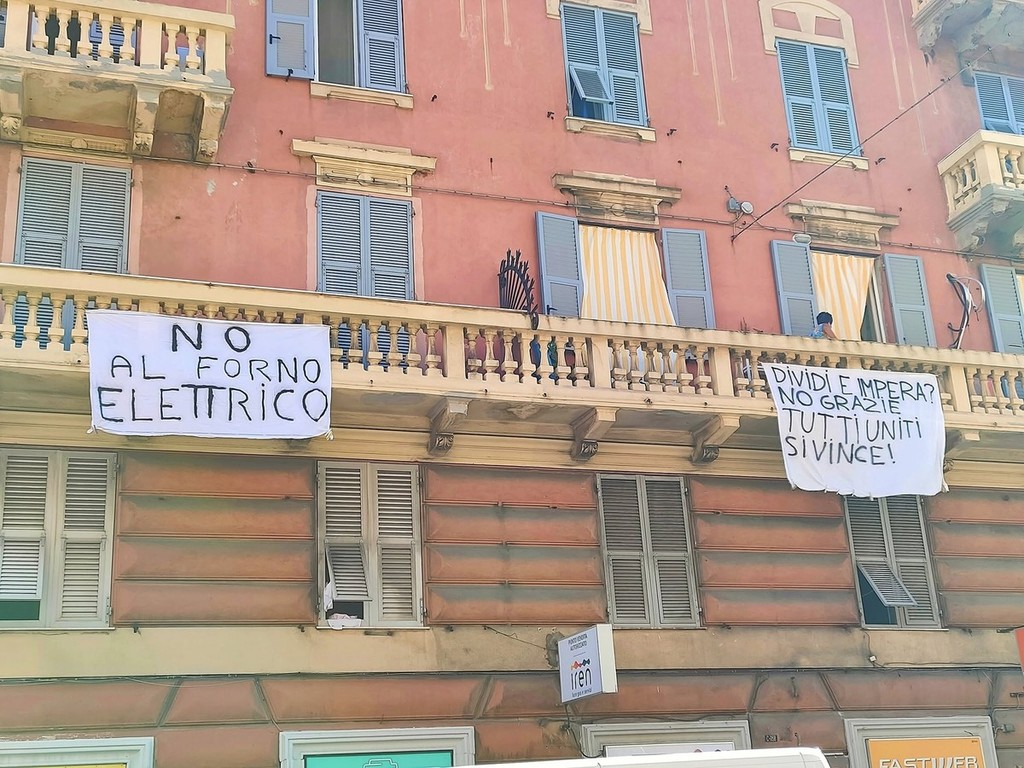 NO
AL FORNO
ELETTRICO
DIVIDI E IMPERA?
NO GRAZIE
TUTTI UNITI
SI VINCE!
PUNTO VENDITA
AUTORIZZATO
iren
luce gas e servizi
FASTWEB